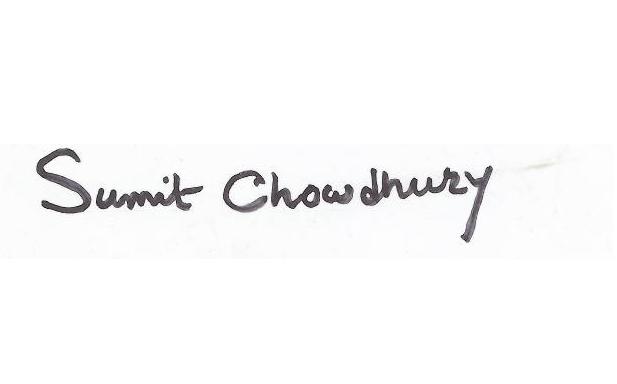 Sumit Chowdhury